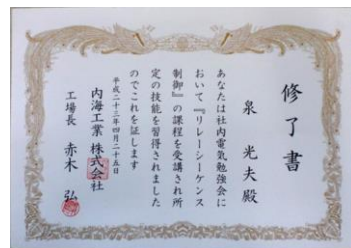 修了書
泉 光夫殿
あなたは社内電気勉強会に
おいて『リレーシーケンス
制御』の課程を受講され所
定の技能を習得されました
のでこれを証します
平成二十三年四月二十五日
内海工業 株式会社
工場長 赤木 弘